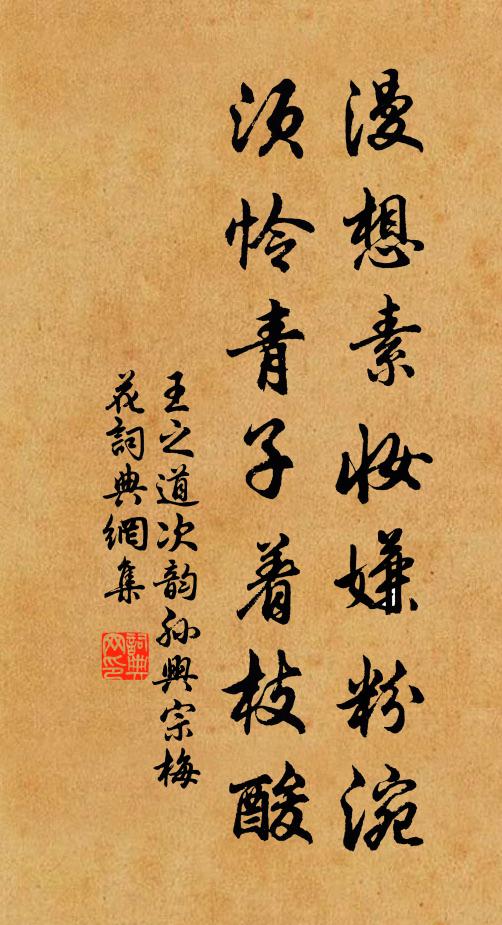 漫想素妆嫌粉涴
须怜青子着枝酸
王之道次韵孙興宗梅
花詞典網集
詞典
网印